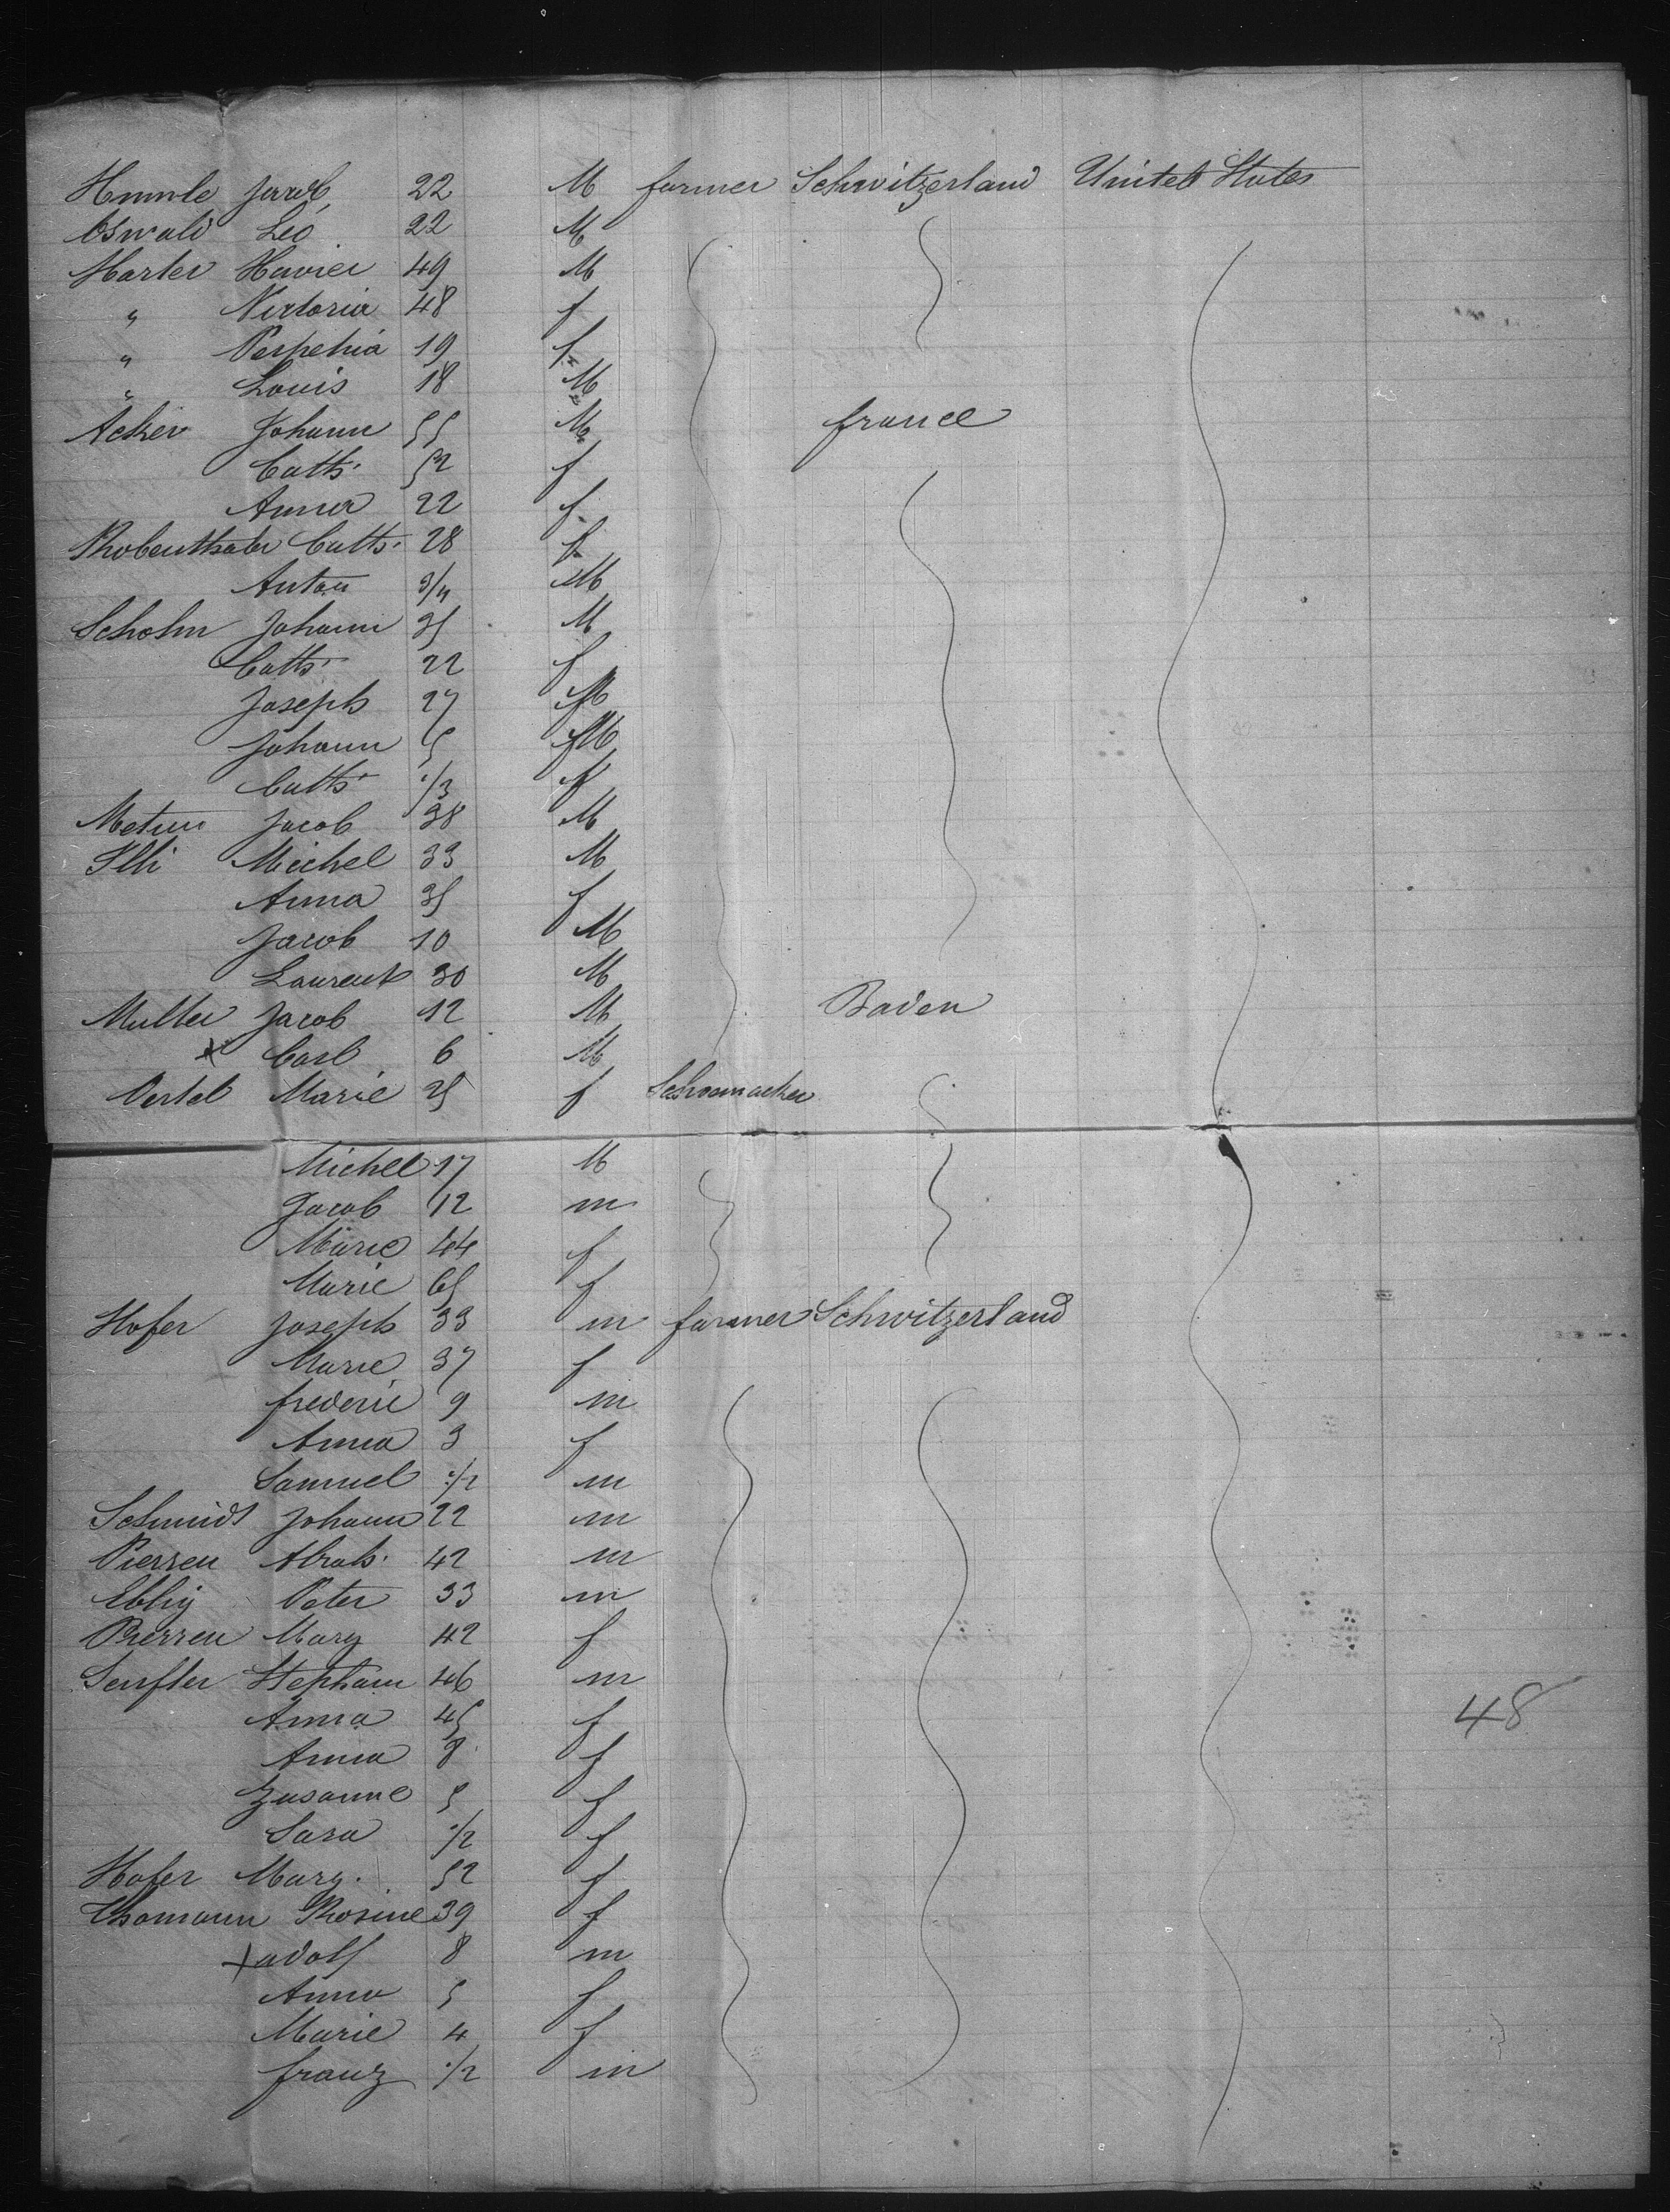 Hunnle Jacob 22 M farmer Schwitzerland United States
Oswald Leo 22 M
Harter Havier 49 M
" Victoria 48 f
" Perpetria 19 f
" Louis 18 M
Acker Johann 55 M france
Cath. 52 f
Anna 22 f
Rhobenthaler Cath. 28 f
Anton 3/4 M
Schohn Johann 35 M
Cath. 22 f
Joseph 27 M
Johann 5 M
Cath. 1/3 f
Jacob 38 M
Illi Michel 33 M
Anna 35 f
Jacob 10 M
Laurent 30 M
Muller Jacob 12 M Baden
x Carl 6 M
Oertel Marie 25 f Schoemacker
Michel 17 M
Jacob 12 m
Marie 44 f
Marie 65 f
Hofer Joseph 33 m farmer Schwitzerland
Marie 37 f
frederic 9 m
Anna 3 f
Samuel 1/2 m
Schmidt Johann 22 m
Pierren Abrah. 42 m
Ebbig Peter 33 m
Pierren Marg 42 f
Senften Stephan 46 m
Anna 45 f 48
Anna 8 f
Zusanne 5 f
Sara 1/2 f
Hofer Marg. 52 f
Thomann Rhosine 39 f
x adolf 8 m
Anna 5 f
Marie 4 f
franz 1/2 m